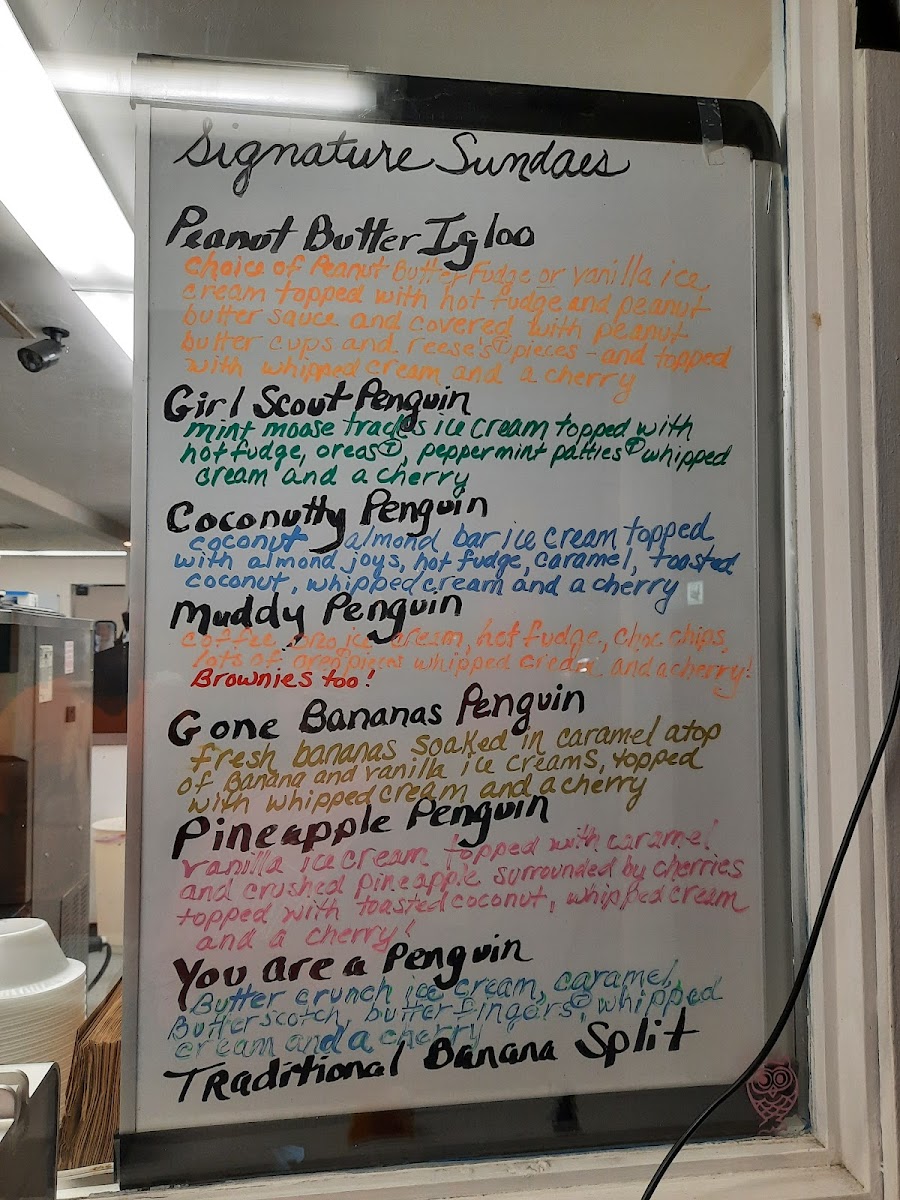 Signature Sundaes
Peanut Butter Igloo
choice of Peanut Butter Fudge or vanilla ice
cream topped with hot fudge and peanut
butter sauce and covered with peanut
butter cups and reese's® pieces - and topped
with whipped cream and a cherry
Girl Scout Penguin
mint moose tracks ice cream topped with
hot fudge, oreos®, peppermint patties® whipped
cream and a cherry
Coconutty Penguin
coconut almond bar ice cream topped
with almond joys, hot fudge, caramel, toasted
coconut, whipped cream and a cherry
Muddy Penguin
coffee oreo ice cream, hot fudge, choc chips,
lots of oreo pieces whipped cream and a cherry!
Brownies too!
Gone Bananas Penguin
fresh bananas soaked in caramel atop
of Banana and vanilla ice creams, topped
with whipped cream and a cherry
Pineapple Penguin
vanilla ice cream topped with caramel
and crushed pineapple surrounded by cherries
topped with toasted coconut, whipped cream
and a cherry!
You are a Penguin
Butter crunch ice cream, caramel,
Butterscotch, butterfingers®, whipped
cream and a cherry
Traditional Banana Split